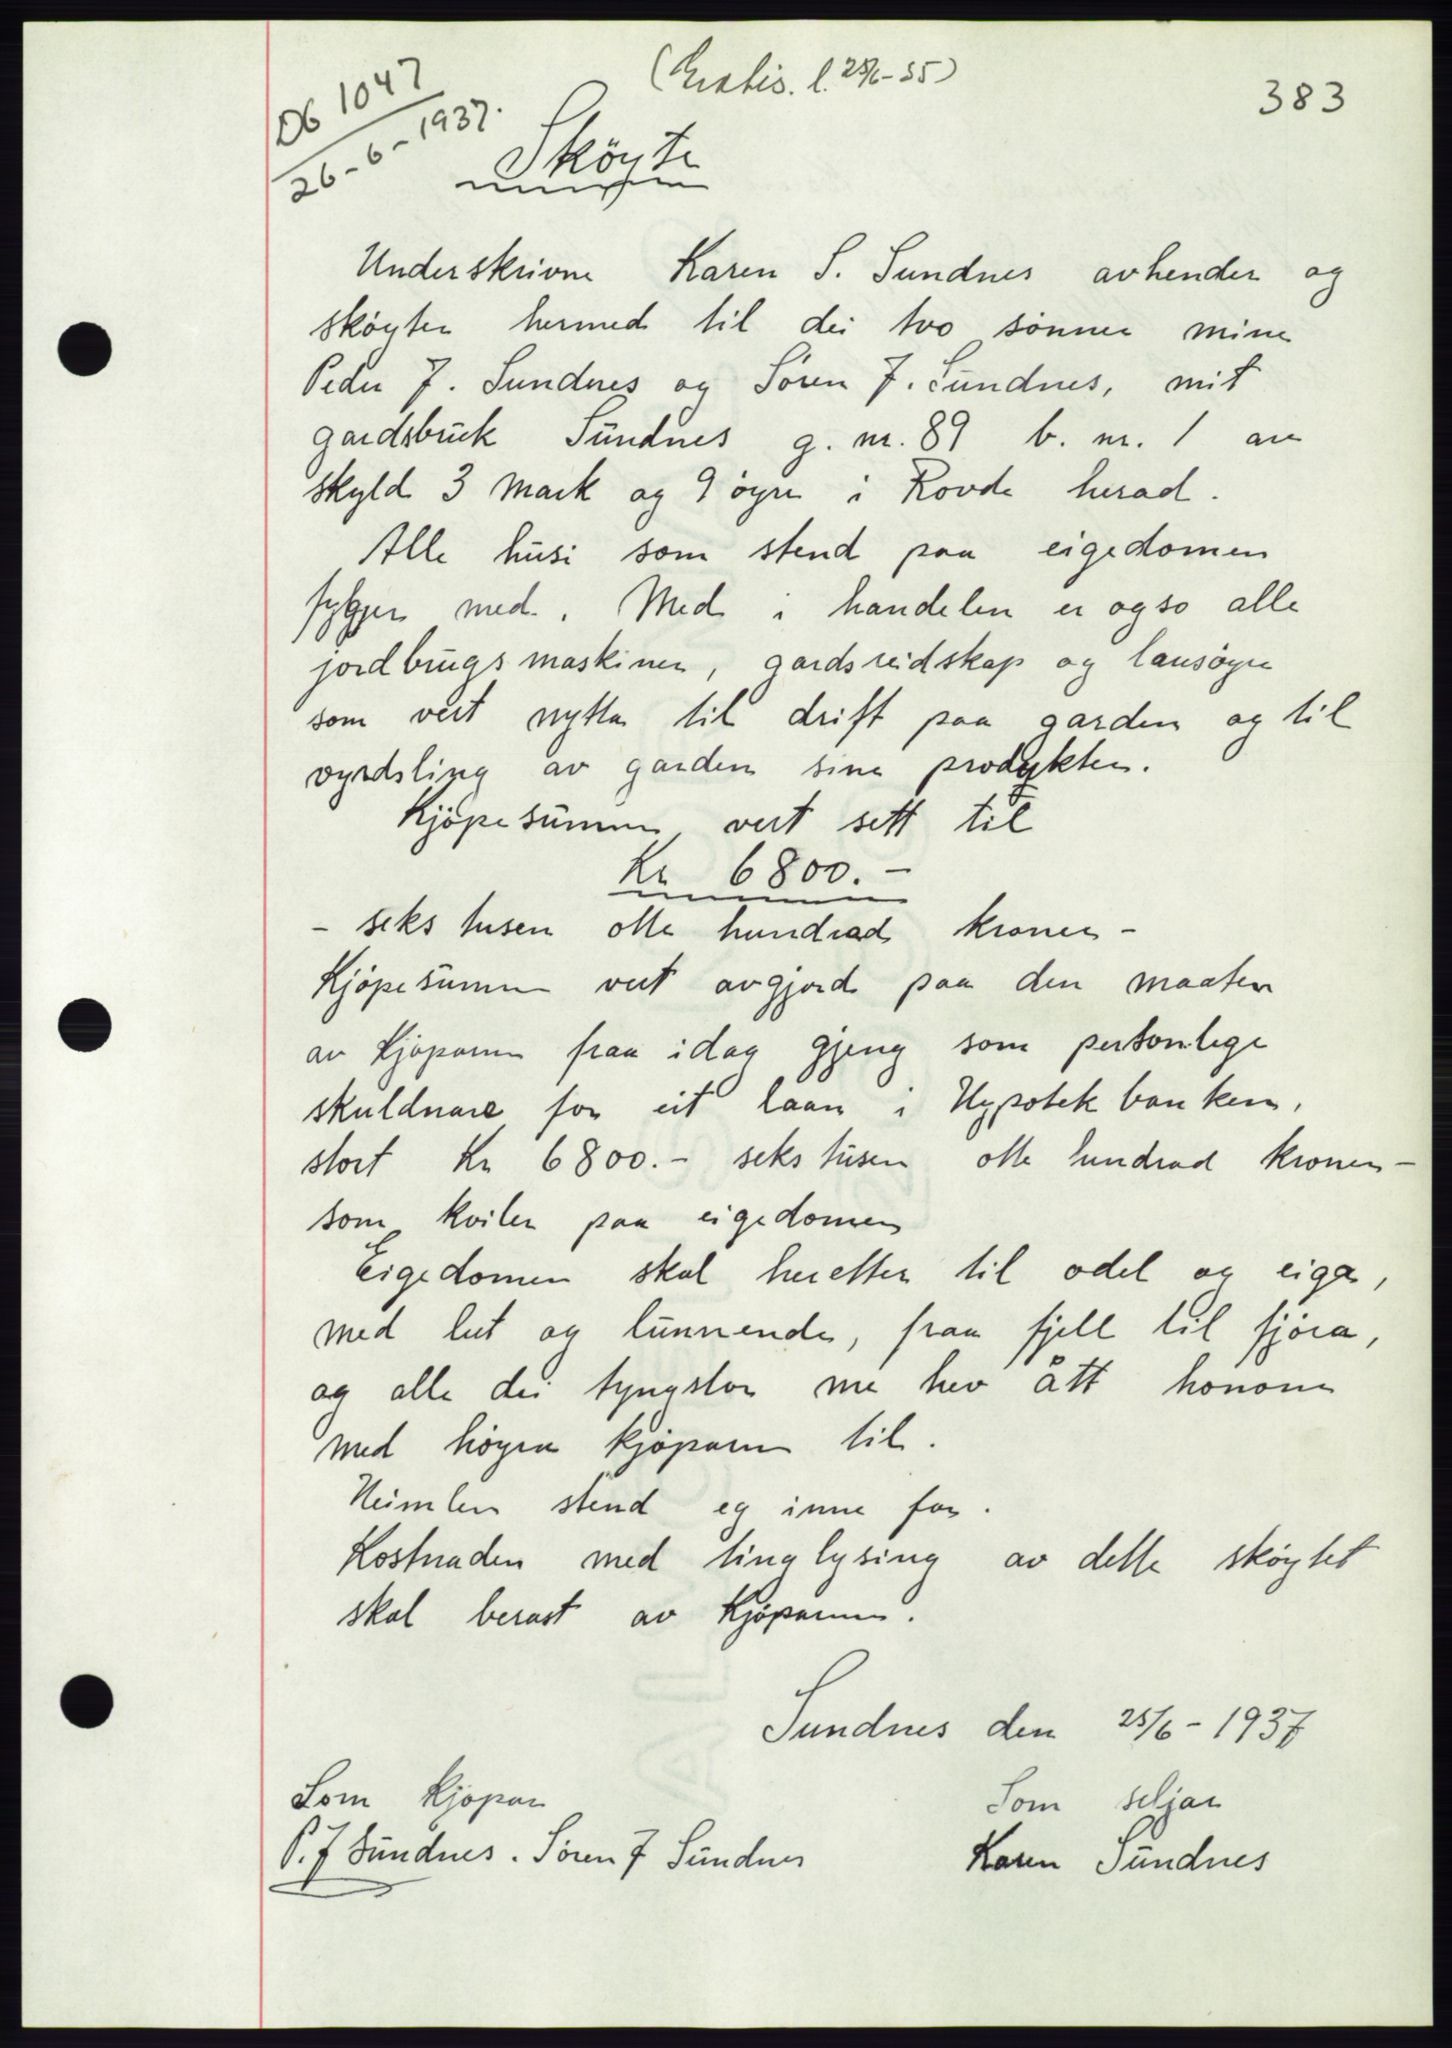 (Gratis. l. 25/6-35)
383
DG 1047
26-6-1937.
Sköyte
Underskrivne Karen S. Sundnes avhender og
sköyter hermed til dei two sønner mine
Peder J. Sundnes og Søren J. Sundnes, mit
gardsbruk Sundnes g. nr. 89 b. nr. 1 av
skyld 3 mark og 9 öyre i Rovde herad.
Alle husi som stend paa eigedomen
fylgjer med. Med i handelen er ogso alle
jordbrugsmaskiner, gardsreidskap og lausöyre
som vert nytta til drift paa garden og til
vyrdsling av garden sine produkter.
Kjöpesummen vert sett til
Kr 6800.-
- seks tusen otte hundrad kroner -
Kjöpesummen vert avgjord paa den maaten
av kjöparen fraa idag gjeng som personlege
skuldnare for eit laan i Hypotekbanken,
stort Kr 6800.- seks tusen otte hundrad kroner-
som kviler paa eigedomen
Eigedomen skal heretter til odel og eiga,
med lut og lunnende, fraa fjell til fjöra,
og alle dei tyngslor me hev ått honom
med höyra kjöparen til.
Heimlen stend eg inne for.
Kostnaden med tinglysing av dette sköytet
skal berast av Kjöparen.
Sundnes den 25/6-1937
Som kjöpar
Som seljar
P. J Sundnes. Søren J Sundnes
Karen Sundnes